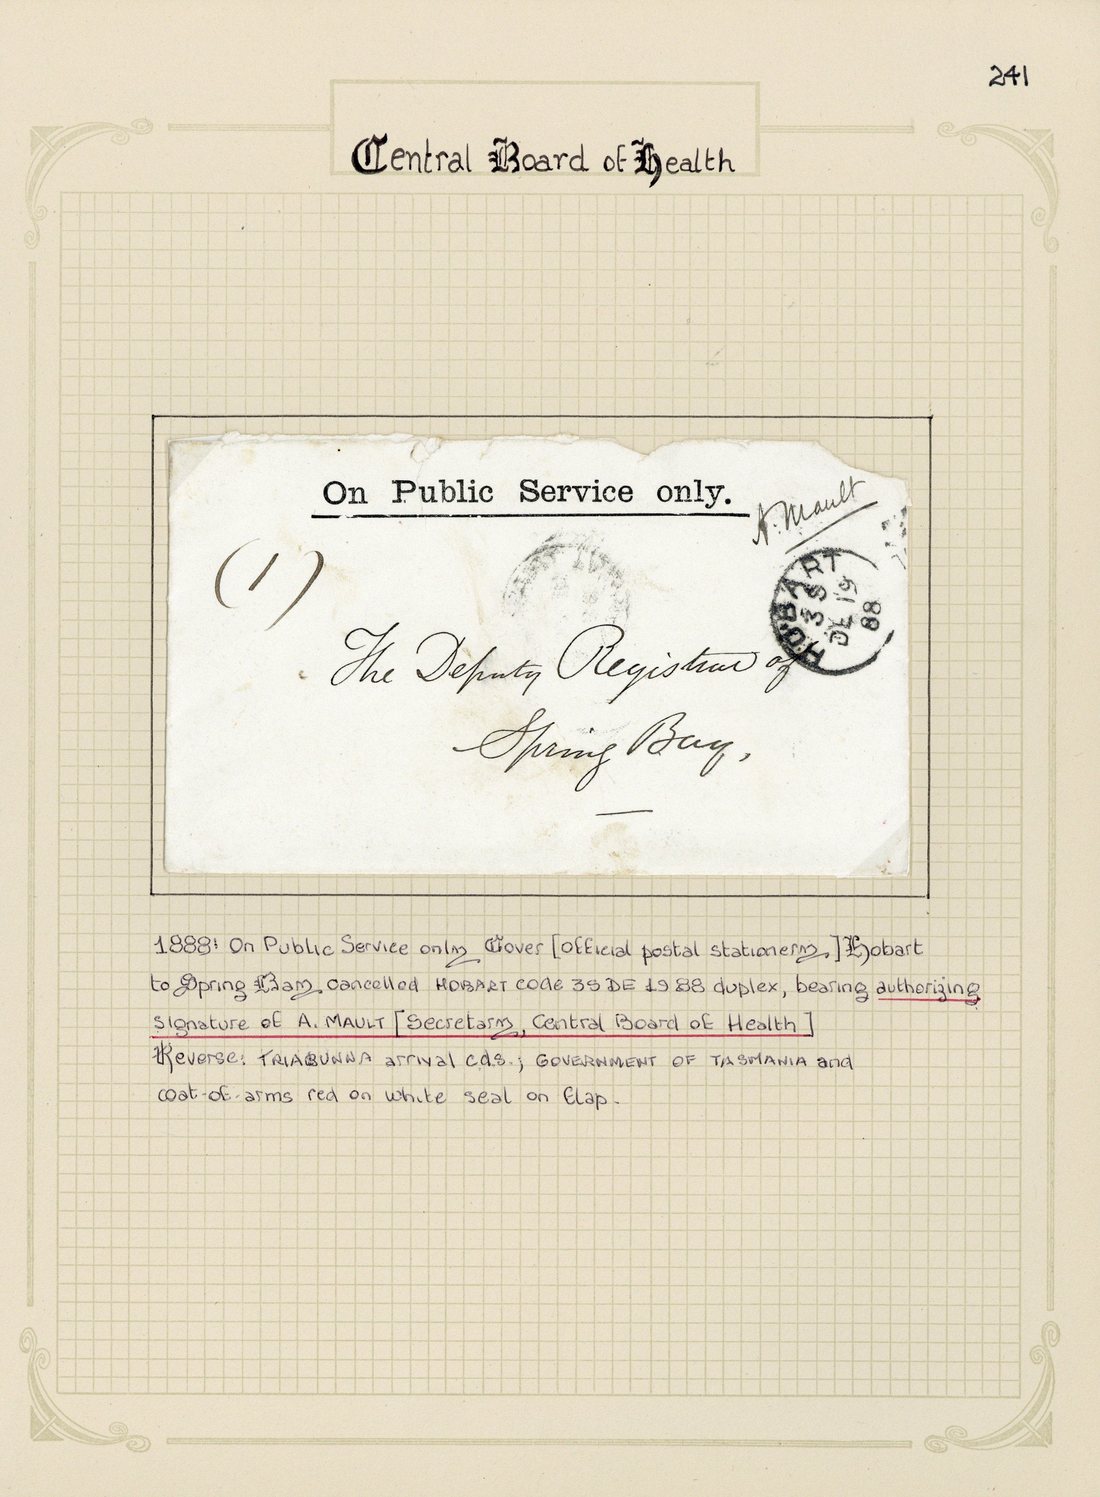 241
Central Board of Health
On Public Service only.
A. Mault
(1)
HOBART
3S
DE 19
88
The Deputy Registrar of
Spring Bay,
1888: On Public Service only Cover [official postal stationery,] Hobart
to Spring Bay, cancelled HOBART code 3S DE 19 88 duplex, bearing authorizing
signature of A. MAULT [Secretary, Central Board of Health]
Reverse: TRIABUNNA arrival cds.; GOVERNMENT OF TASMANIA and
coat-of-arms red on white seal on flap.